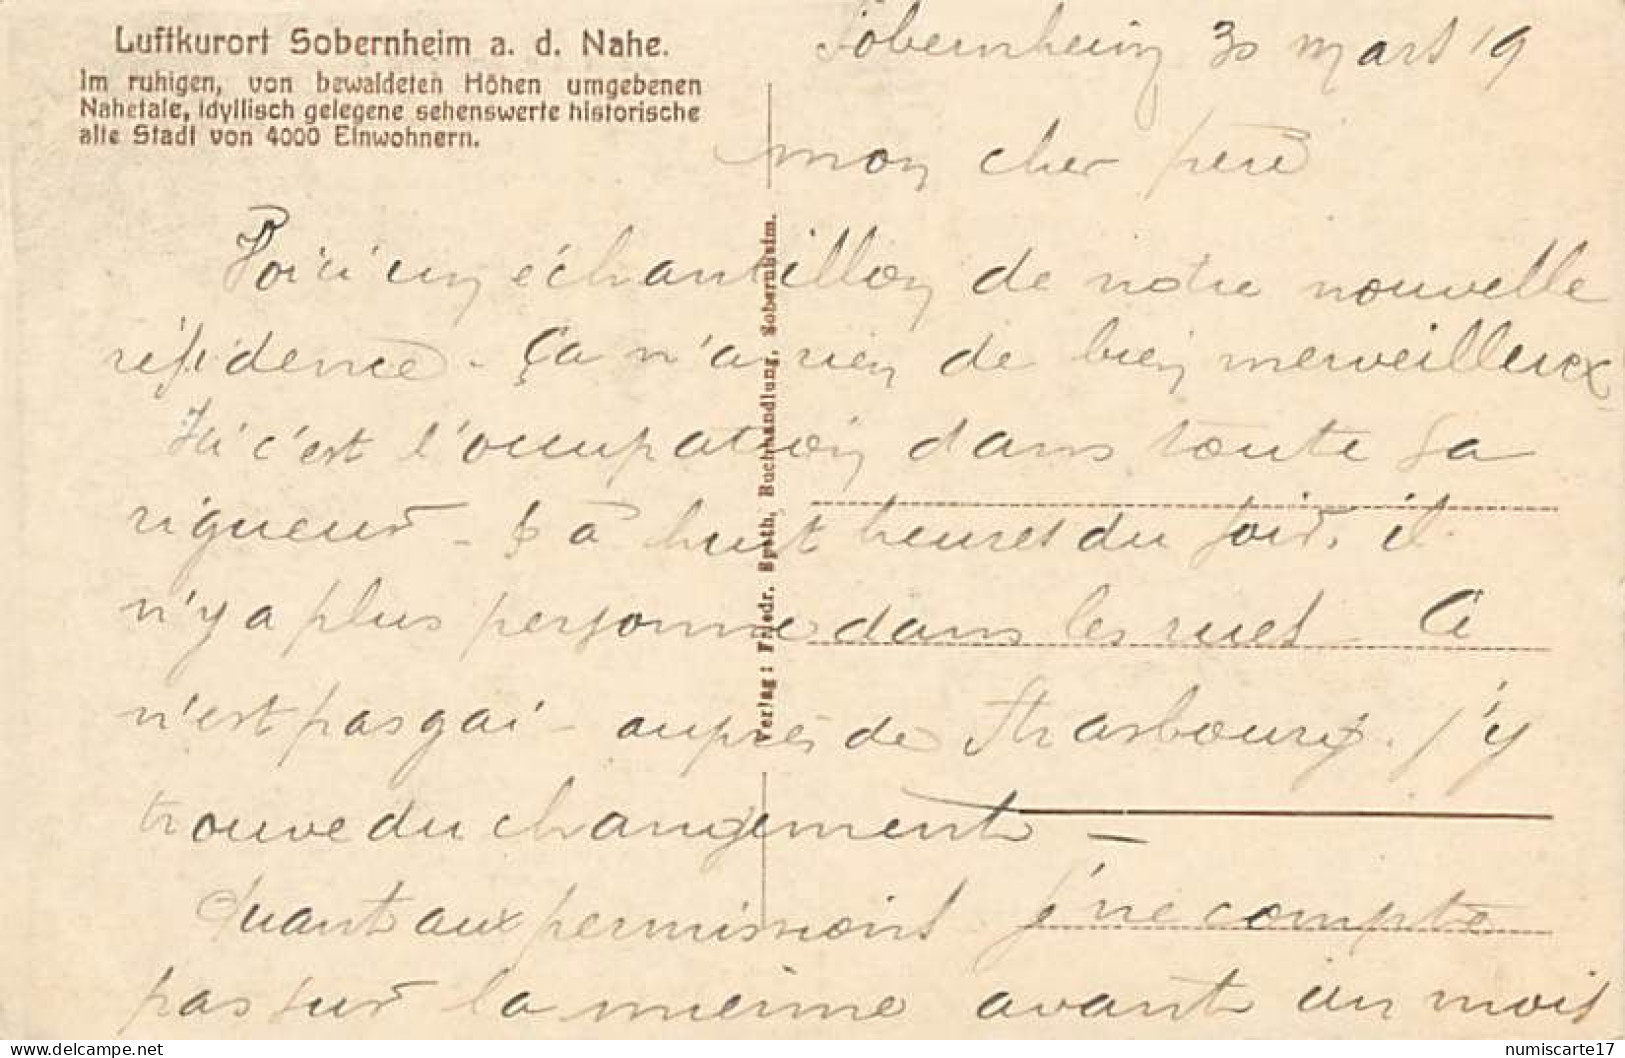 Luftkurort Sobernheim a. d. Nahe.
Im ruhigen, von bewaldeten Höhen umgebenen
Nahetale, idyllisch gelegene sehenswerte historische
alte Stadt von 4000 Einwohnern.
Sobernheim 30 mars 19
mon cher père
Voici un échantillon de notre nouvelle
résidence - Ça n'a rien de bien merveilleux
Ici c'est l'occupation dans toute sa
rigueur - à huit heures du soir, il
n'y a plus personne dans les rues Ce
n'est pas gai - auprès de Strasbourg. j'y
trouve du changement -
Quant aux permissions je ne compte
pas sur la mienne avant un mois
Verlag: Friedr. Späth, Buchhandlung, Sobernheim.
numiscarte17